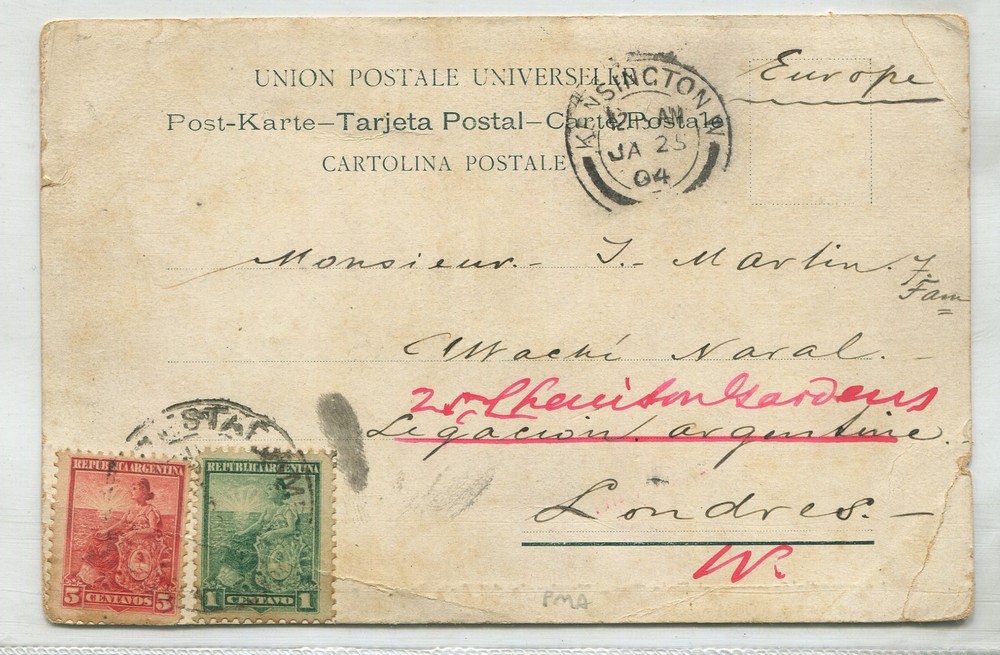 UNION POSTALE UNIVERSELLE
Europe
Post-Karte–Tarjeta Postal–Carte Postale
CARTOLINA POSTALE
KENSINGTON W
12 AM
JA 25
04
Monsieur.- J. Martin. F.
Fam
Attaché Naval.-
25 Cheniston Gardens
Legacion. argentine.
Londres.-
W.
REPUBLICA ARGENTINA
5 CENTAVOS 5
REPUBLICA ARGENTINA
1 CENTAVO 1
PMA